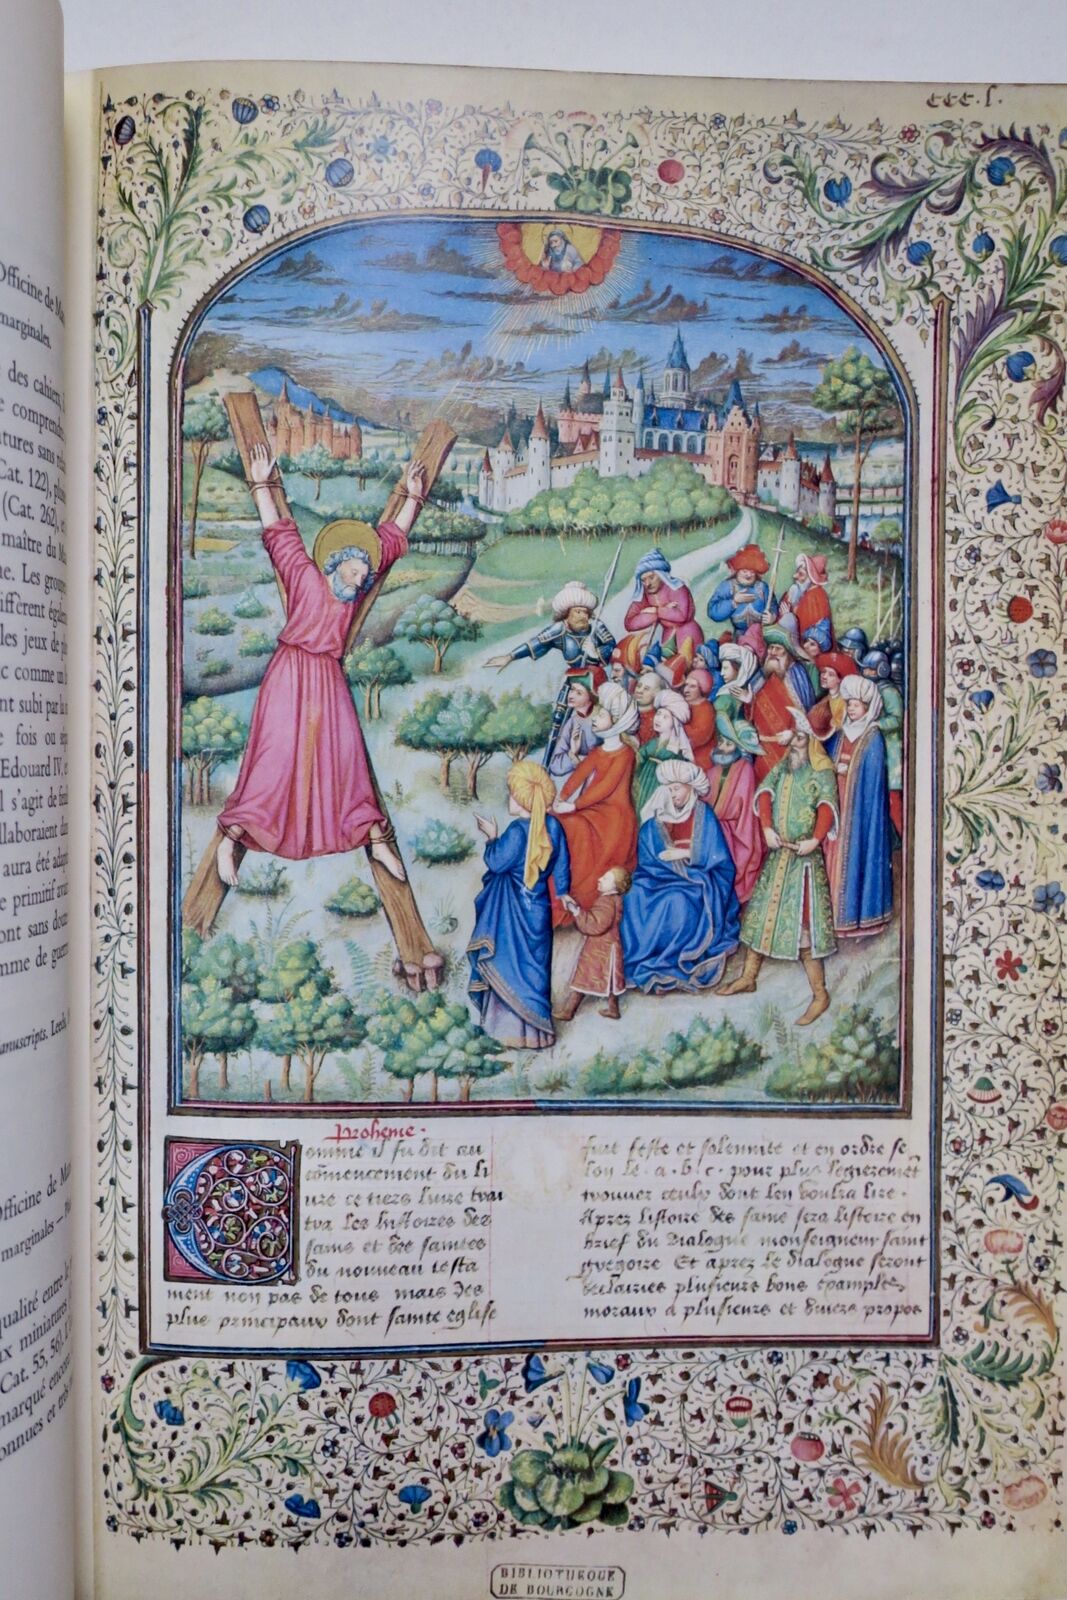 Officine de
marginales.
des cahiers,
comprendre
sans
Cat. 122),
(Cat. 262),
maître du
Les
diffèrent
les jeux de
comme un
subi par la
fois ou
Edouard IV,
l s'agit de
aura été
primitif
sans
de
Leeds,
Officine de
marginales —
qualité entre
miniatures
Cat. 55, 56).
marqué
et
ccc. l.
Proheme.
Comme il fu dit au
commencement du li
ure ce tiers liure trai
tra les histoires des
sains et des saintes
du nouveau testa
ment non pas de tous mais des
plus principaux dont sainte eglise
fait feste et solennite et en ordre se
lon le .a.b.c. pour plus legierement
trouuer ceulx dont len voulra lire.
Aprez listoire des sains sera listoire en
brief du Dialogue monseigneur saint
gregoire Et aprez le dialogue seront
declairies plusieurs bons examples
moraux a plusieurs et diuers propos
BIBLIOTHEQUE
DE BOURGOGNE